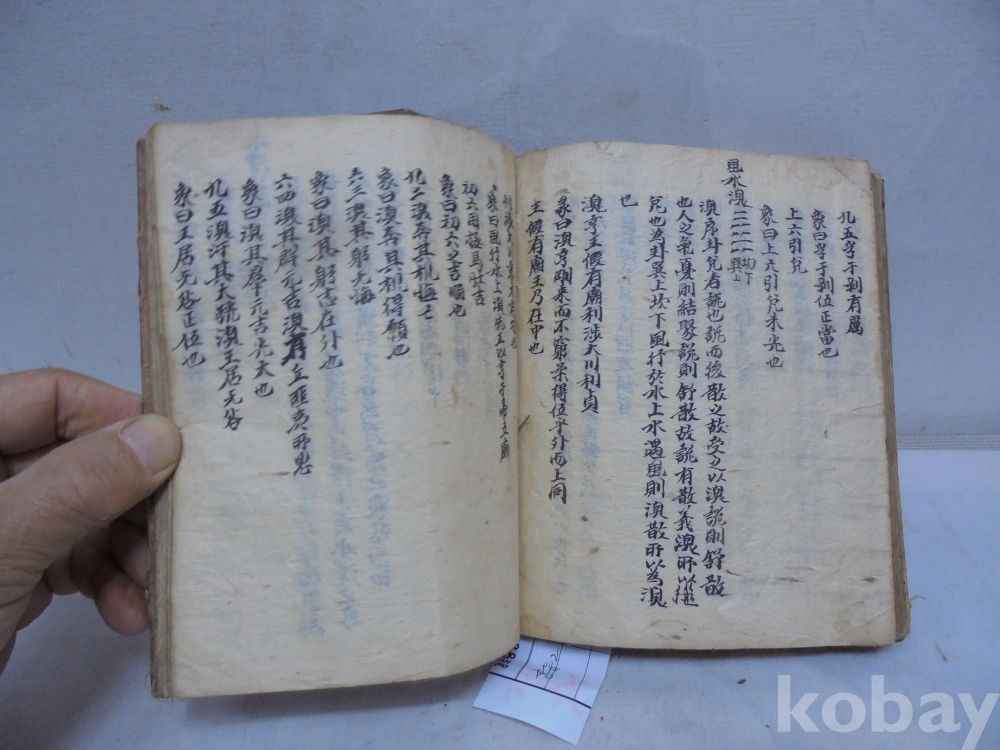 九五孚于剝有厲
象曰孚于剝位正當也
上六引兌
象曰上六引兌未光也
風水渙 坎下 巽上
渙序卦兌者說也說而後散之故受之以渙說則舒散
也人之氣憂則結聚說則舒散故說有散義渙所以繼
兌也為卦巽上坎下風行於水上水遇風則渙散所以為渙
也
渙亨王假有廟利涉大川利貞
彖曰渙亨剛來而不窮柔得位乎外而上同
王假有廟王乃在中也
利涉大川乘木有功也
象曰風行水上渙先王以享于帝立廟
初六用拯馬壯吉
象曰初六之吉順也
九二渙奔其机悔亡
象曰渙奔其机得願也
六三渙其躬无悔
象曰渙其躬志在外也
六四渙其群元吉渙有丘匪夷所思
象曰渙其群元吉光大也
九五渙汗其大號渙王居无咎
象曰王居无咎正位也
kobay